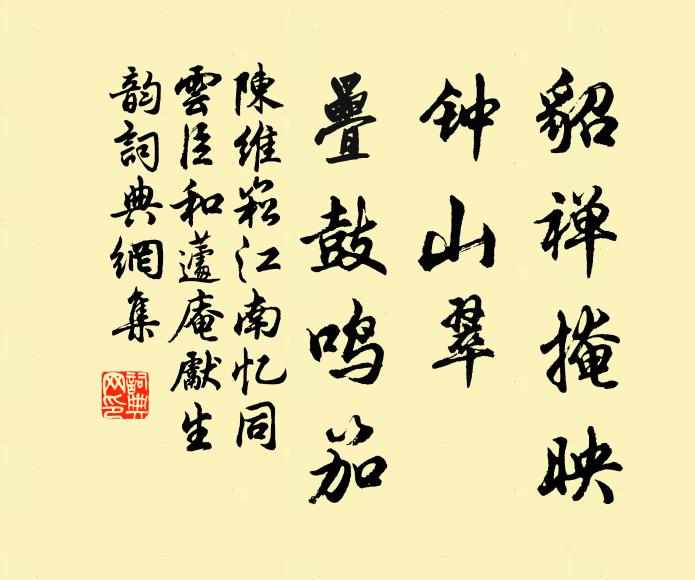 貂禅掩映
钟山翠
疊鼓鸣笳
陳维崧江南忆同
雲臣和蘧庵獻生
韵詞典網集
詞典
网印